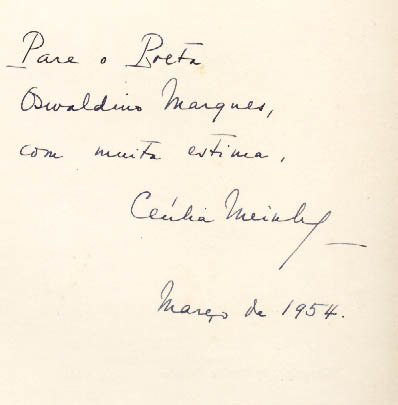 Para o Poeta
Oswaldino Marques,
com muita estima,
Cecília Meireles
Março de 1954.